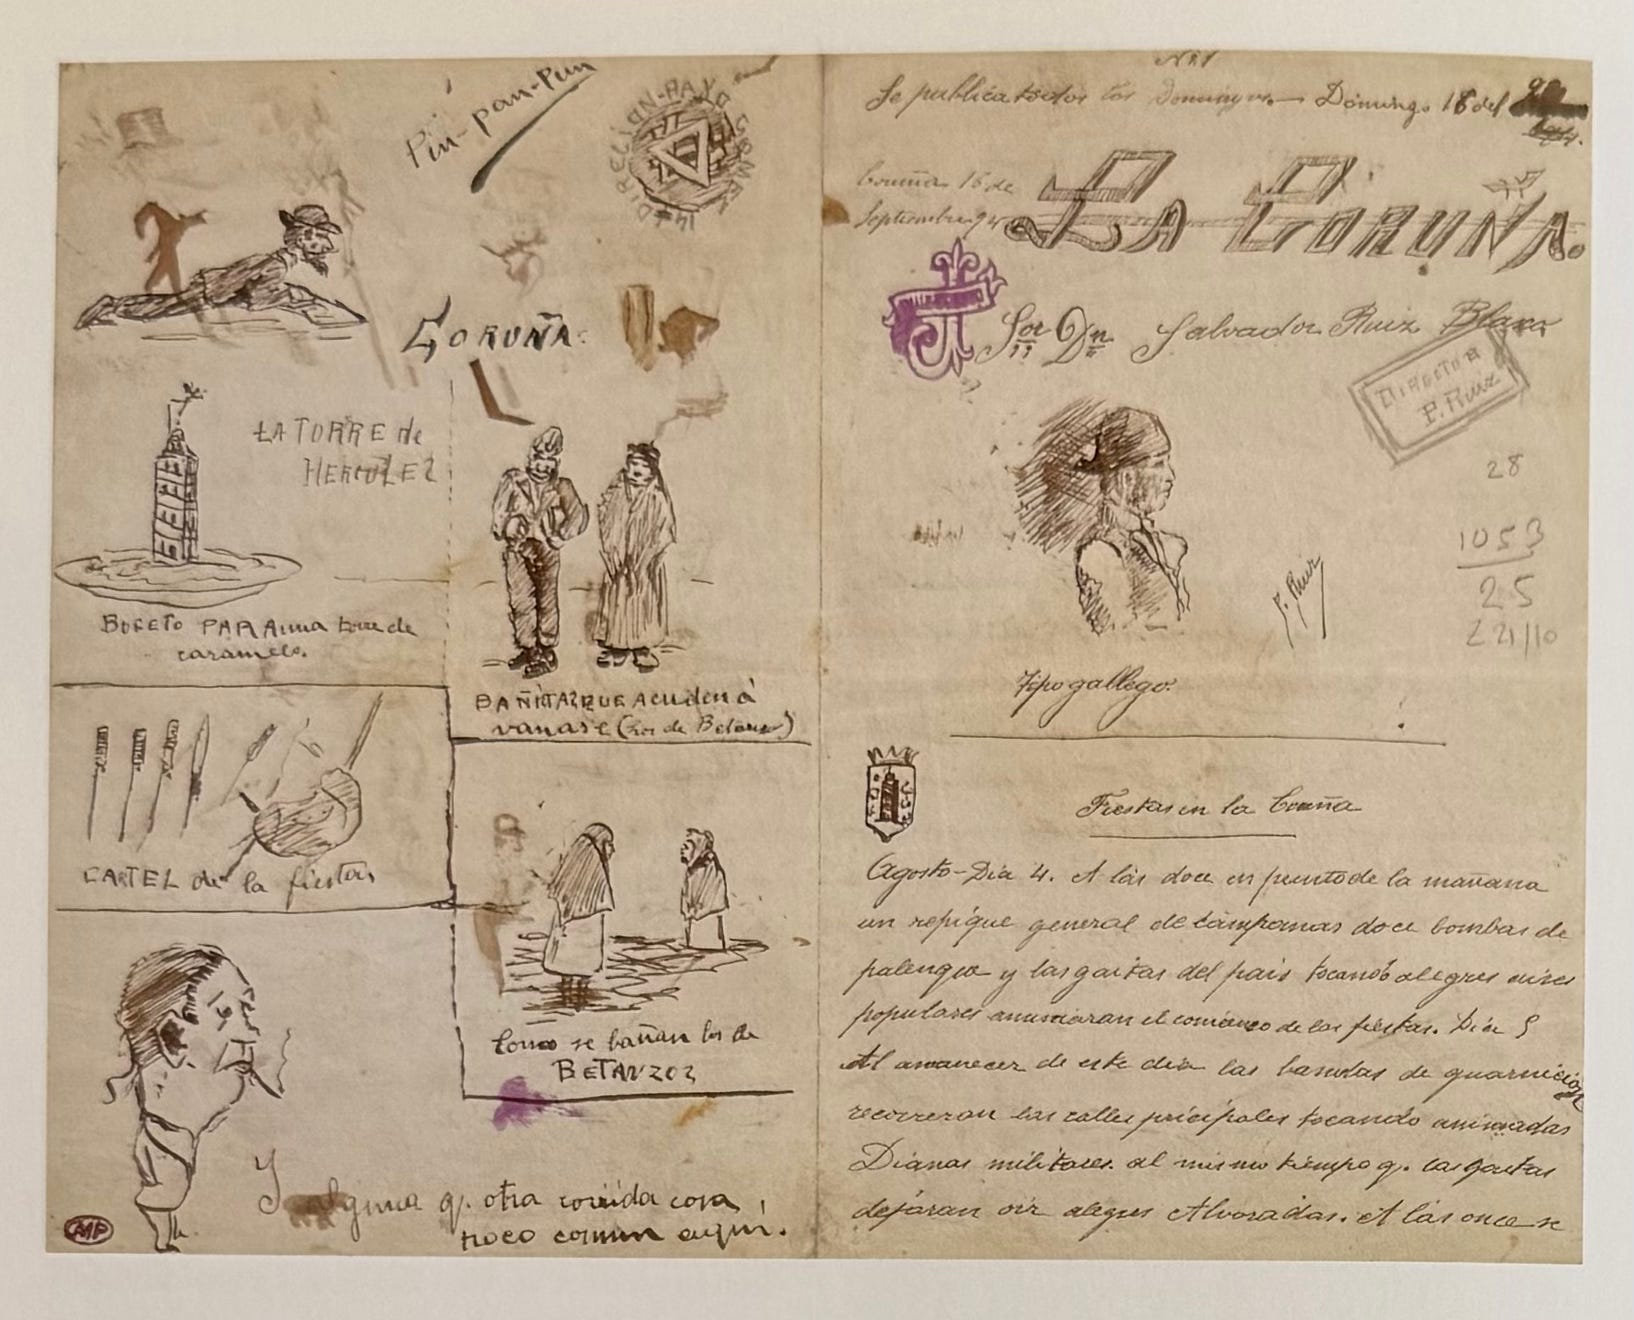 Pin-pan-Pun
14 DIRECION-PAYO GOMEZ
CORUÑA.
LA TORRE de
HERCULES
BOCETO PARA una torre de
caramelo.
BAÑISTAS QUE Acuden á
vanarse (los de Betanzos)
CARTEL de la fiestas
Como se bañan los de
BETANZOS
Y alguna q. otra corrida cosa
poco comun aqui.
MP
Nº1
Se publica todos los Domingos.— Domingo 16 del
Coruña 16 de
Septiembre 94
LA CORUÑA.
Sor Dn Salvador Ruiz Blasco
DIRECTOR
P. Ruiz
28
1053
25
221/10
P. Ruiz
Tipo gallego.
Fiestas en la Coruña
Agosto-Dia 4. A las doce en punto de la mañana
un repique general de campamas doce bombas de
palenque y las gaitas del pais tocando alegres aires
populares anunciaran el comienco de las fiestas. Dia 5
Al amanecer de este dia las bandas de guarnicion
recorreran las calles pricipales tocando animadas
Dianas militares. al mismo tiempo q. las gaitas
dejaran oir alegres Alvoradas. A las once se